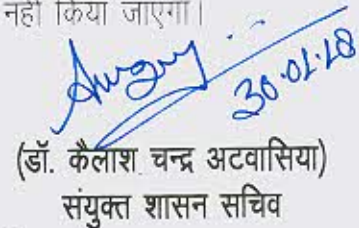 नहीं किया जाएगा।
30.01.18
(डॉ. कैलाश चन्द्र अटवासिया)
संयुक्त शासन सचिव